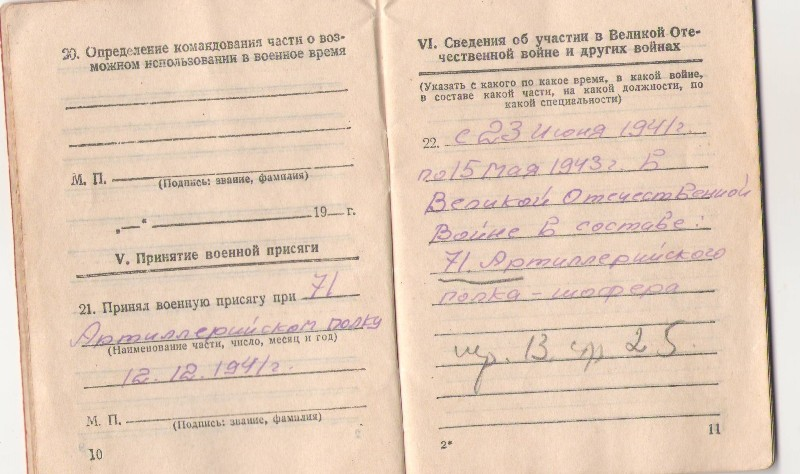 20. Определение командования части о воз-
можном использовании в военное время
М. П.
(Подпись: звание, фамилия)
„—“ 19— г.
V. Принятие военной присяги
21. Принял военную присягу при 71
Артиллерийском полку
(Наименование части, число, месяц и год)
12.12.1941г.
М. П.
(Подпись: звание, фамилия)
10
VI. Сведения об участии в Великой Оте-
чественной войне и других войнах
(Указать с какого по какое время, в какой войне,
в составе какой части, на какой должности, по
какой специальности)
22. с 23 Июня 1941г.
по 15 Мая 1943г. В
Великой Отечественной
Войне в составе:
71 Артиллерийского
полка - шофера
гр. 13 25
2*
11